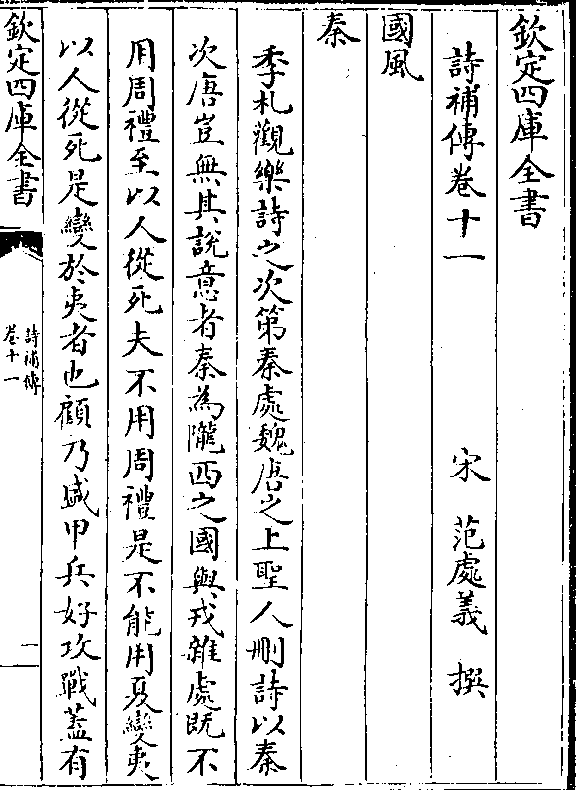 欽定四庫全書
詩補傳卷十一
宋 范處義 撰
國風
秦
季札觀樂詩之次第秦處魏唐之上聖人刪詩以秦
次唐豈無其說意者秦為隴西之國與戎雜處既不
用周禮至以人從死夫不用周禮是不能用夏變夷
以人從死是變於夷者也顧乃盛甲兵好攻戰蓋有
欽定四庫全書
詩補傳
卷十一
一